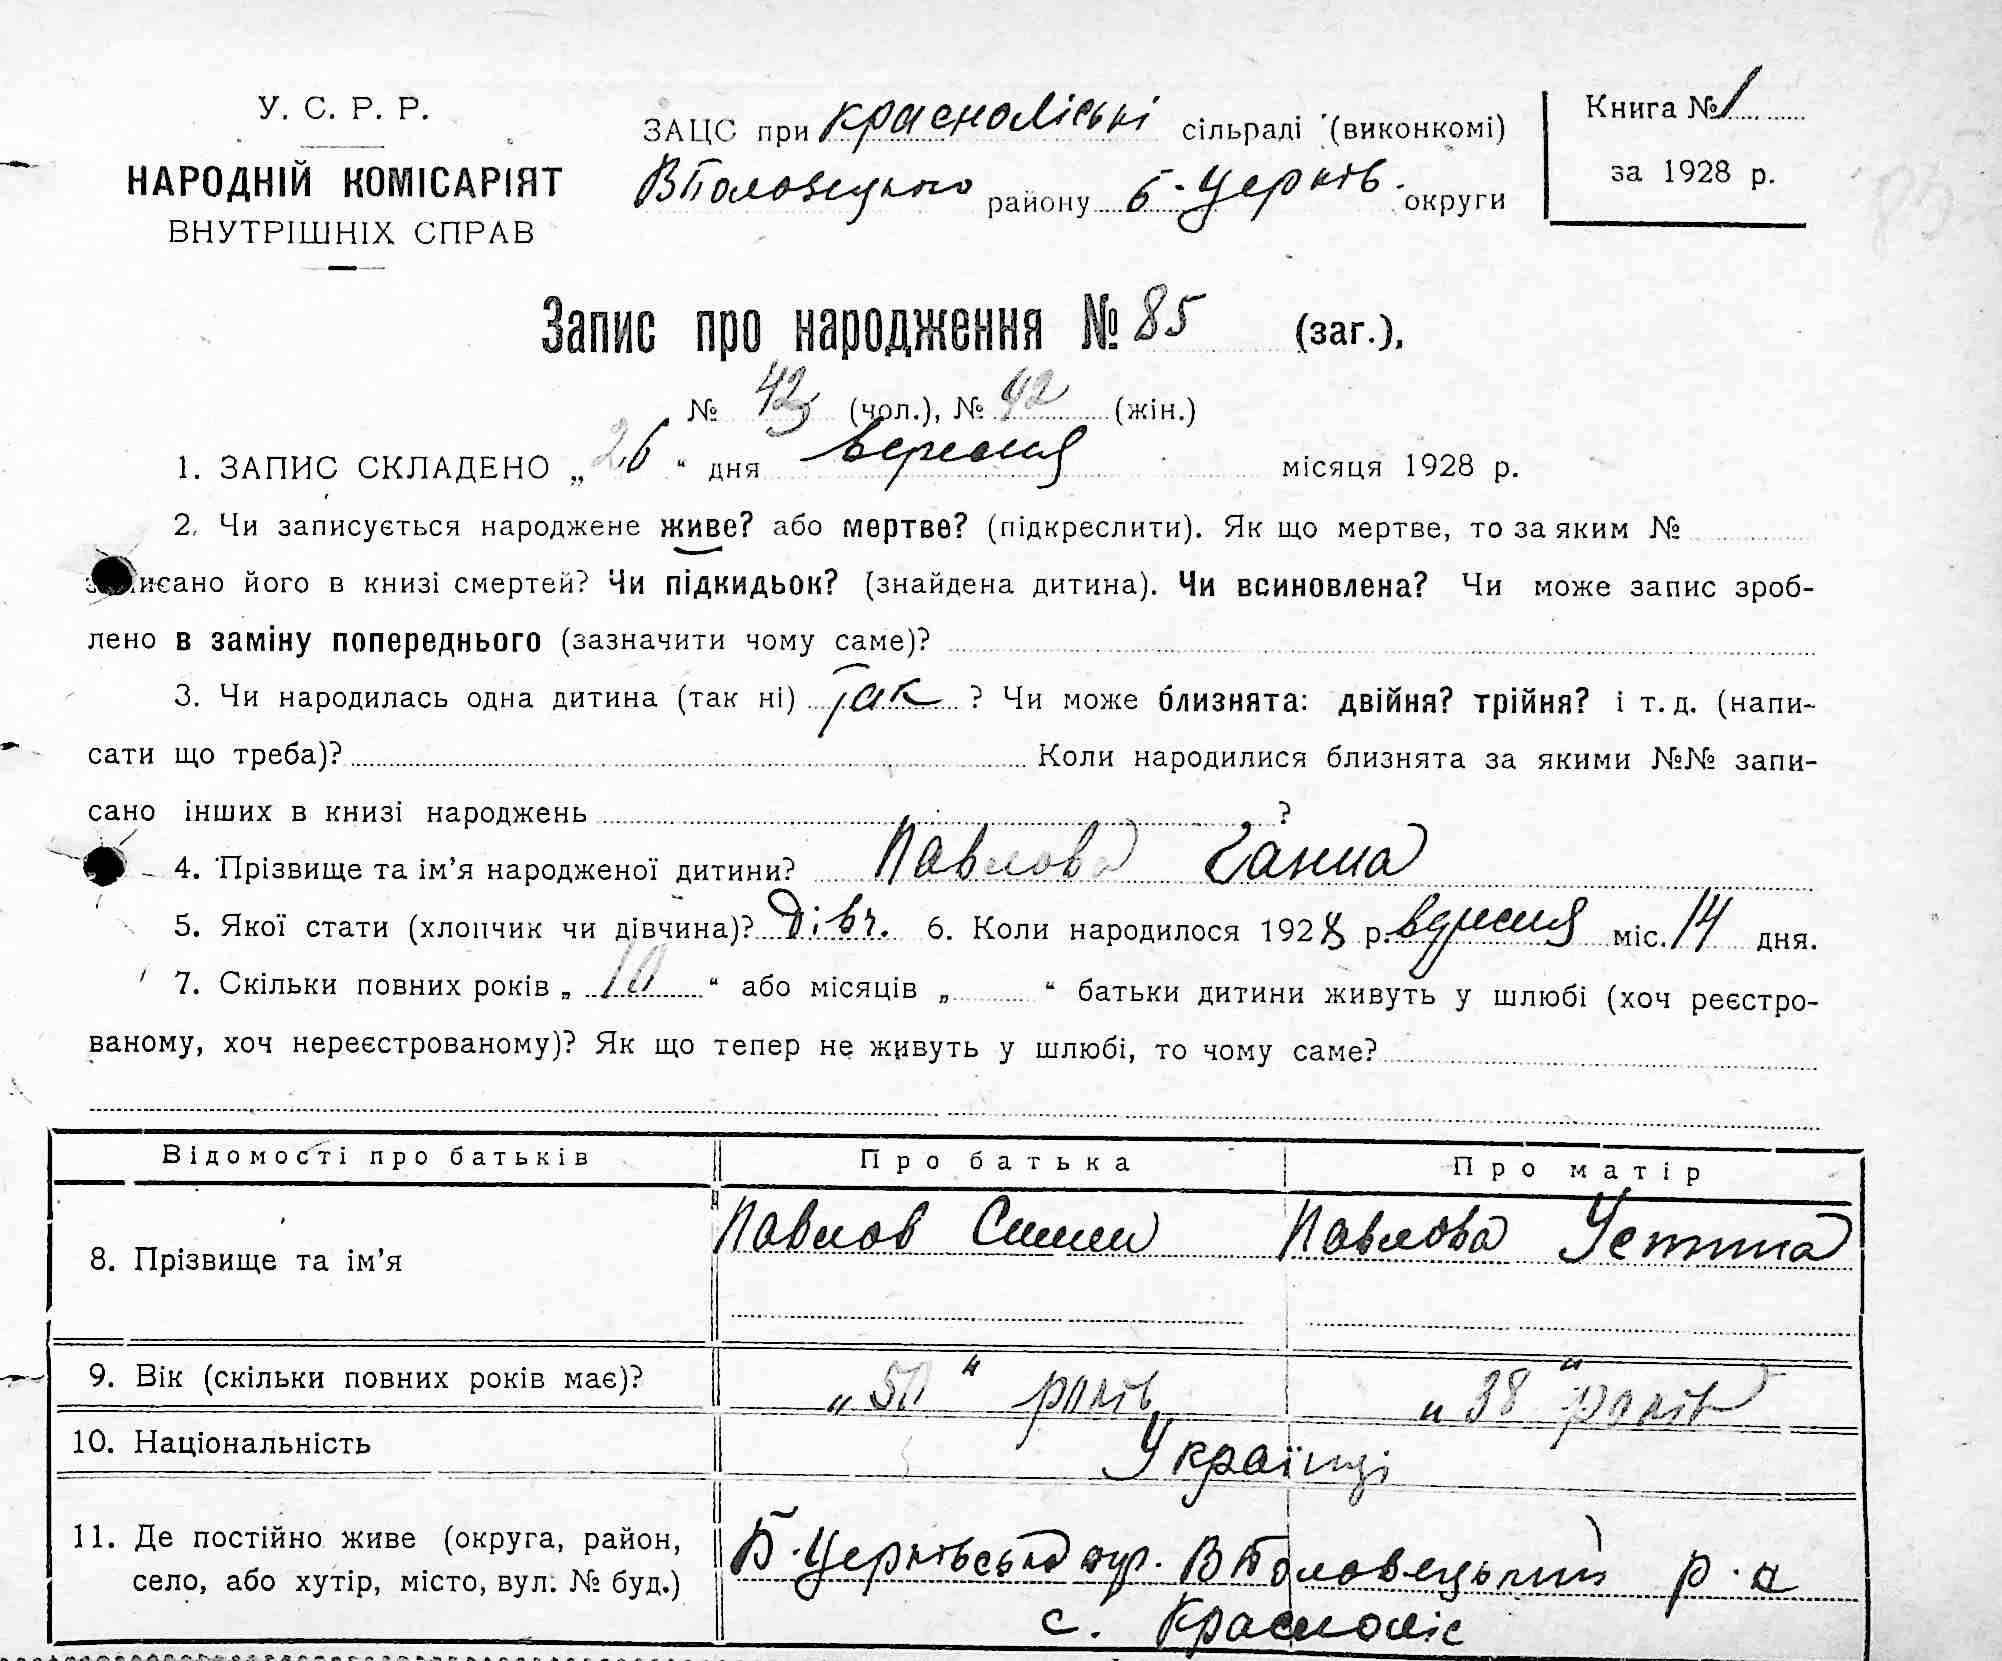 У. С. Р. Р.
НАРОДНІЙ КОМІСАРІЯТ
ВНУТРІШНІХ СПРАВ
ЗАЦС при Красноліські сільраді (виконкомі)
ВПоловецького району Б. Церків. округи
Книга № 1
за 1928 р.
Запис про народження № 85 (заг.),
№ 43 (чол.), № 42 (жін.)
1. ЗАПИС СКЛАДЕНО „ 26 “ дня вересня місяця 1928 р.
2. Чи записується народжене живе? або мертве? (підкреслити). Як що мертве, то за яким №
записано його в книзі смертей? Чи підкидьок? (знайдена дитина). Чи всиновлена? Чи може запис зроб-
лено в заміну попереднього (зазначити чому саме)?
3. Чи народилась одна дитина (так ні) так ? Чи може близнята: двійня? трійня? і т. д. (напи-
сати що треба)? Коли народилися близнята за якими №№ запи-
сано інших в книзі народжень ?
4. Прізвище та ім’я народженої дитини? Павлова Ганна
5. Якої стати (хлопчик чи дівчина)? Дівч. 6. Коли народилося 1928 р. вересня міс. 14 дня.
7. Скільки повних років „ 10 “ або місяців „ “ батьки дитини живуть у шлюбі (хоч реєстро-
ваному, хоч нереєстрованому)? Як що тепер не живуть у шлюбі, то чому саме?
Відомості про батьків Про батька Про матір
8. Прізвище та ім’я Павлов Павлова Устина
9. Вік (скільки повних років має)? „ 50 “ років „ 38 “ років
10. Національність Українці
11. Де постійно живе (округа, район, Б. Церківська окр. ВПоловецький р-н
село, або хутір, місто, вул. № буд.) с. Красноліс